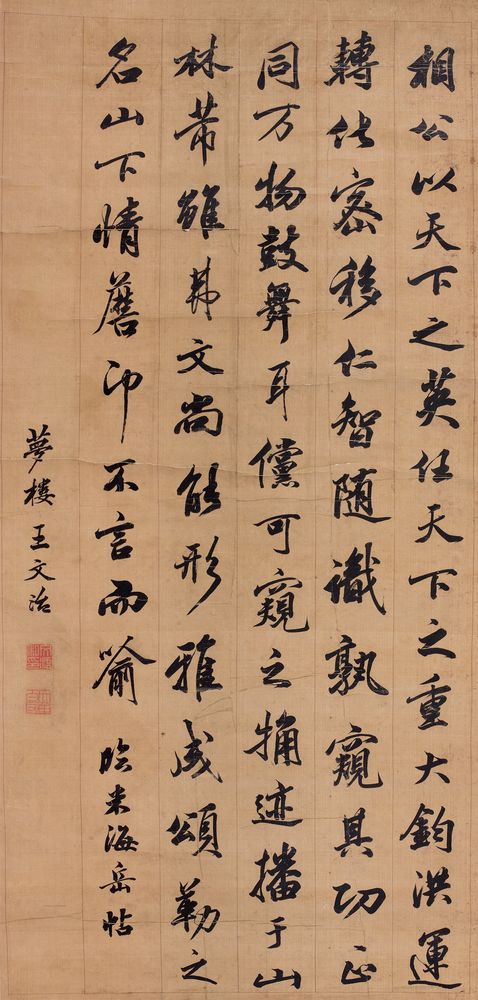 相公以天下之英任天下之重大鈞洪運
轉化密移仁智随識孰窺其功正
同万物鼓舞耳儻可窺之迹播于山
林芾雖弗文尚能形雅成頌勒之
名山下情印不言而喻 臨米海岳帖
夢樓王文治